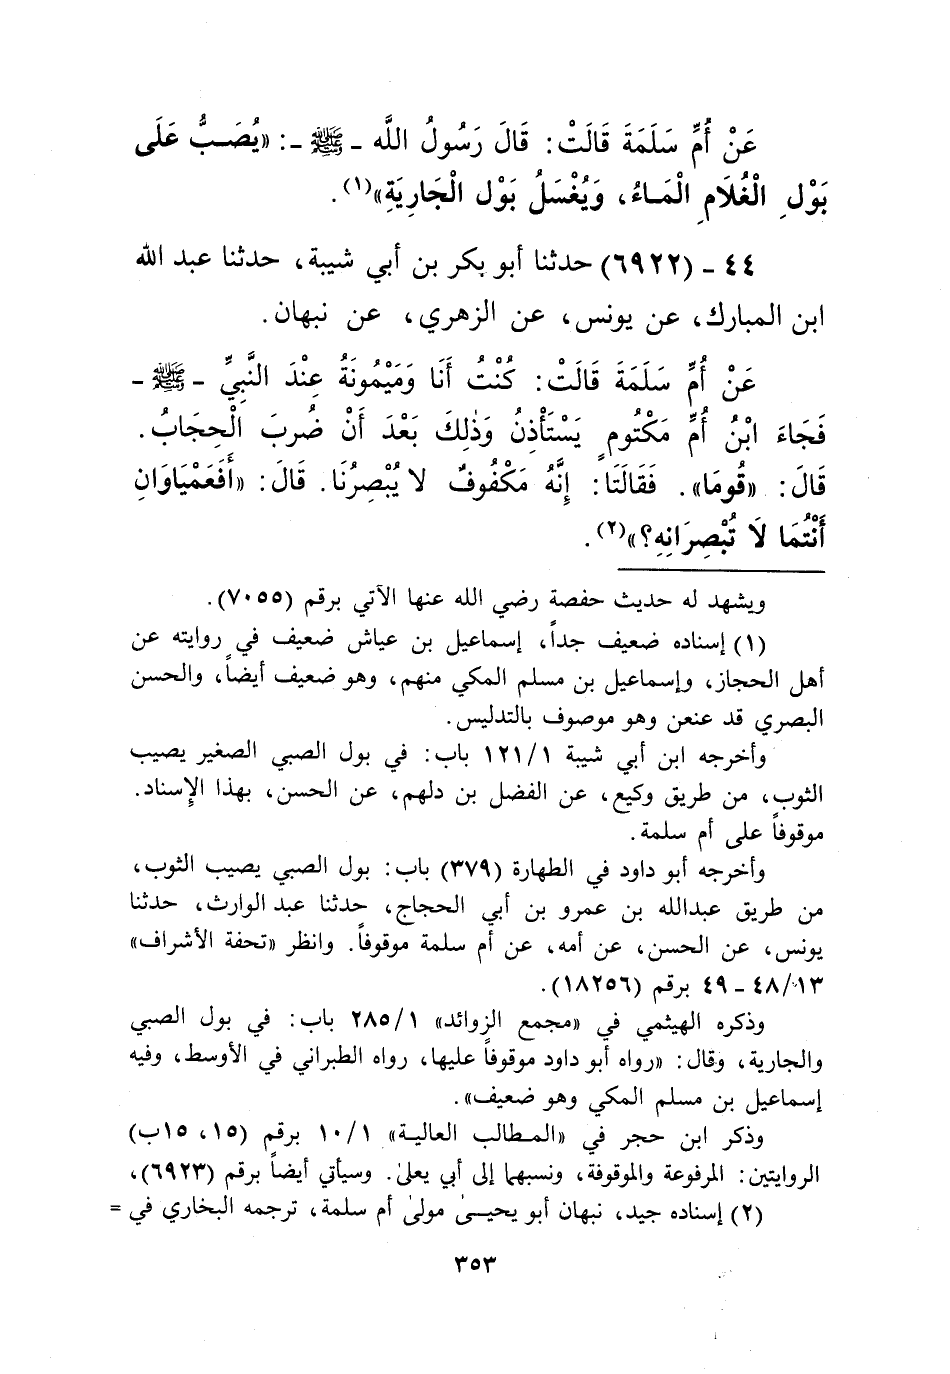 عَنْ أُمِّ سَلَمَةَ قَالَتْ: قَالَ رَسُولُ اللَّه ـ ﷺ ـ: «يُصَـبُّ عَلَى
بَوْلِ الْغُلَامِ الْمَـاءُ، وَيُغْسَلُ بَوْل الْجَارِيَةِ»(١).
٤٤ ـ (٦٩٢٢) حدثنا أبو بكر بن أبي شيبة، حدثنا عبد الله
ابن المبارك، عن يونس، عن الزهري، عن نبهان.
عَنْ أُمِّ سَلَمَةَ قَالَتْ: كُنْتُ أَنَا وَمَيْمُونَةُ عِنْدَ النَّبِيِّ ـ ﷺ ـ
فَجَاءَ ابْنُ أُمِّ مَكْتُومٍ يَسْتَأْذِنُ وَذٰلِكَ بَعْدَ أَنْ ضُرِبَ الْحِجَابُ.
قَالَ: «قُومَا». فَقَالَتَا: إِنَّهُ مَكْفُوفٌ لا يُبْصِرُنَا. قَالَ: «أَفَعَمْيَاوَانِ
أَنْتُمَا لَا تُبْصِرَانِهِ؟»(٢).
ويشهد له حديث حفصة رضي الله عنها الآتي برقم (٧٠٥٥).
(١) إسناده ضعيف جداً، إسماعيل بن عياش ضعيف في روايته عن
أهل الحجاز، وإسماعيل بن مسلم المكي منهم، وهو ضعيف أيضاً، والحسن
البصري قد عنعن وهو موصوف بالتدليس.
وأخرجه ابن أبي شيبة ١٢١/١ باب: في بول الصبي الصغير يصيب
الثوب، من طريق وكيع، عن الفضل بن دلهم، عن الحسن، بهذا الإسناد.
موقوفاً على أم سلمة.
وأخرجه أبو داود في الطهارة (٣٧٩) باب: بول الصبي يصيب الثوب،
من طريق عبدالله بن عمرو بن أبي الحجاج، حدثنا عبد الوارث، حدثنا
يونس، عن الحسن، عن أمه، عن أم سلمة موقوفاً. وانظر «تحفة الأشراف»
٤٨/١٣ ـ ٤٩ برقم (١٨٢٥٦).
وذكره الهيثمي في «مجمع الزوائد» ٢٨٥/١ باب: في بول الصبي
والجارية، وقال: «رواه أبو داود موقوفاً عليها، رواه الطبراني في الأوسط، وفيه
إسماعيل بن مسلم المكي وهو ضعيف».
وذكر ابن حجر في «المطالب العالية» ١٠/١ برقم (١٥، ١٥ب)
الروايتين: المرفوعة والموقوفة، ونسبهما إلى أبي يعلىٰ. وسيأتي أيضاً برقم (٦٩٢٣)،
(٢) إسناده جيد، نبهان أبو يحيـىٰ مولىٰ أم سلمة، ترجمه البخاري في =
٣٥٣